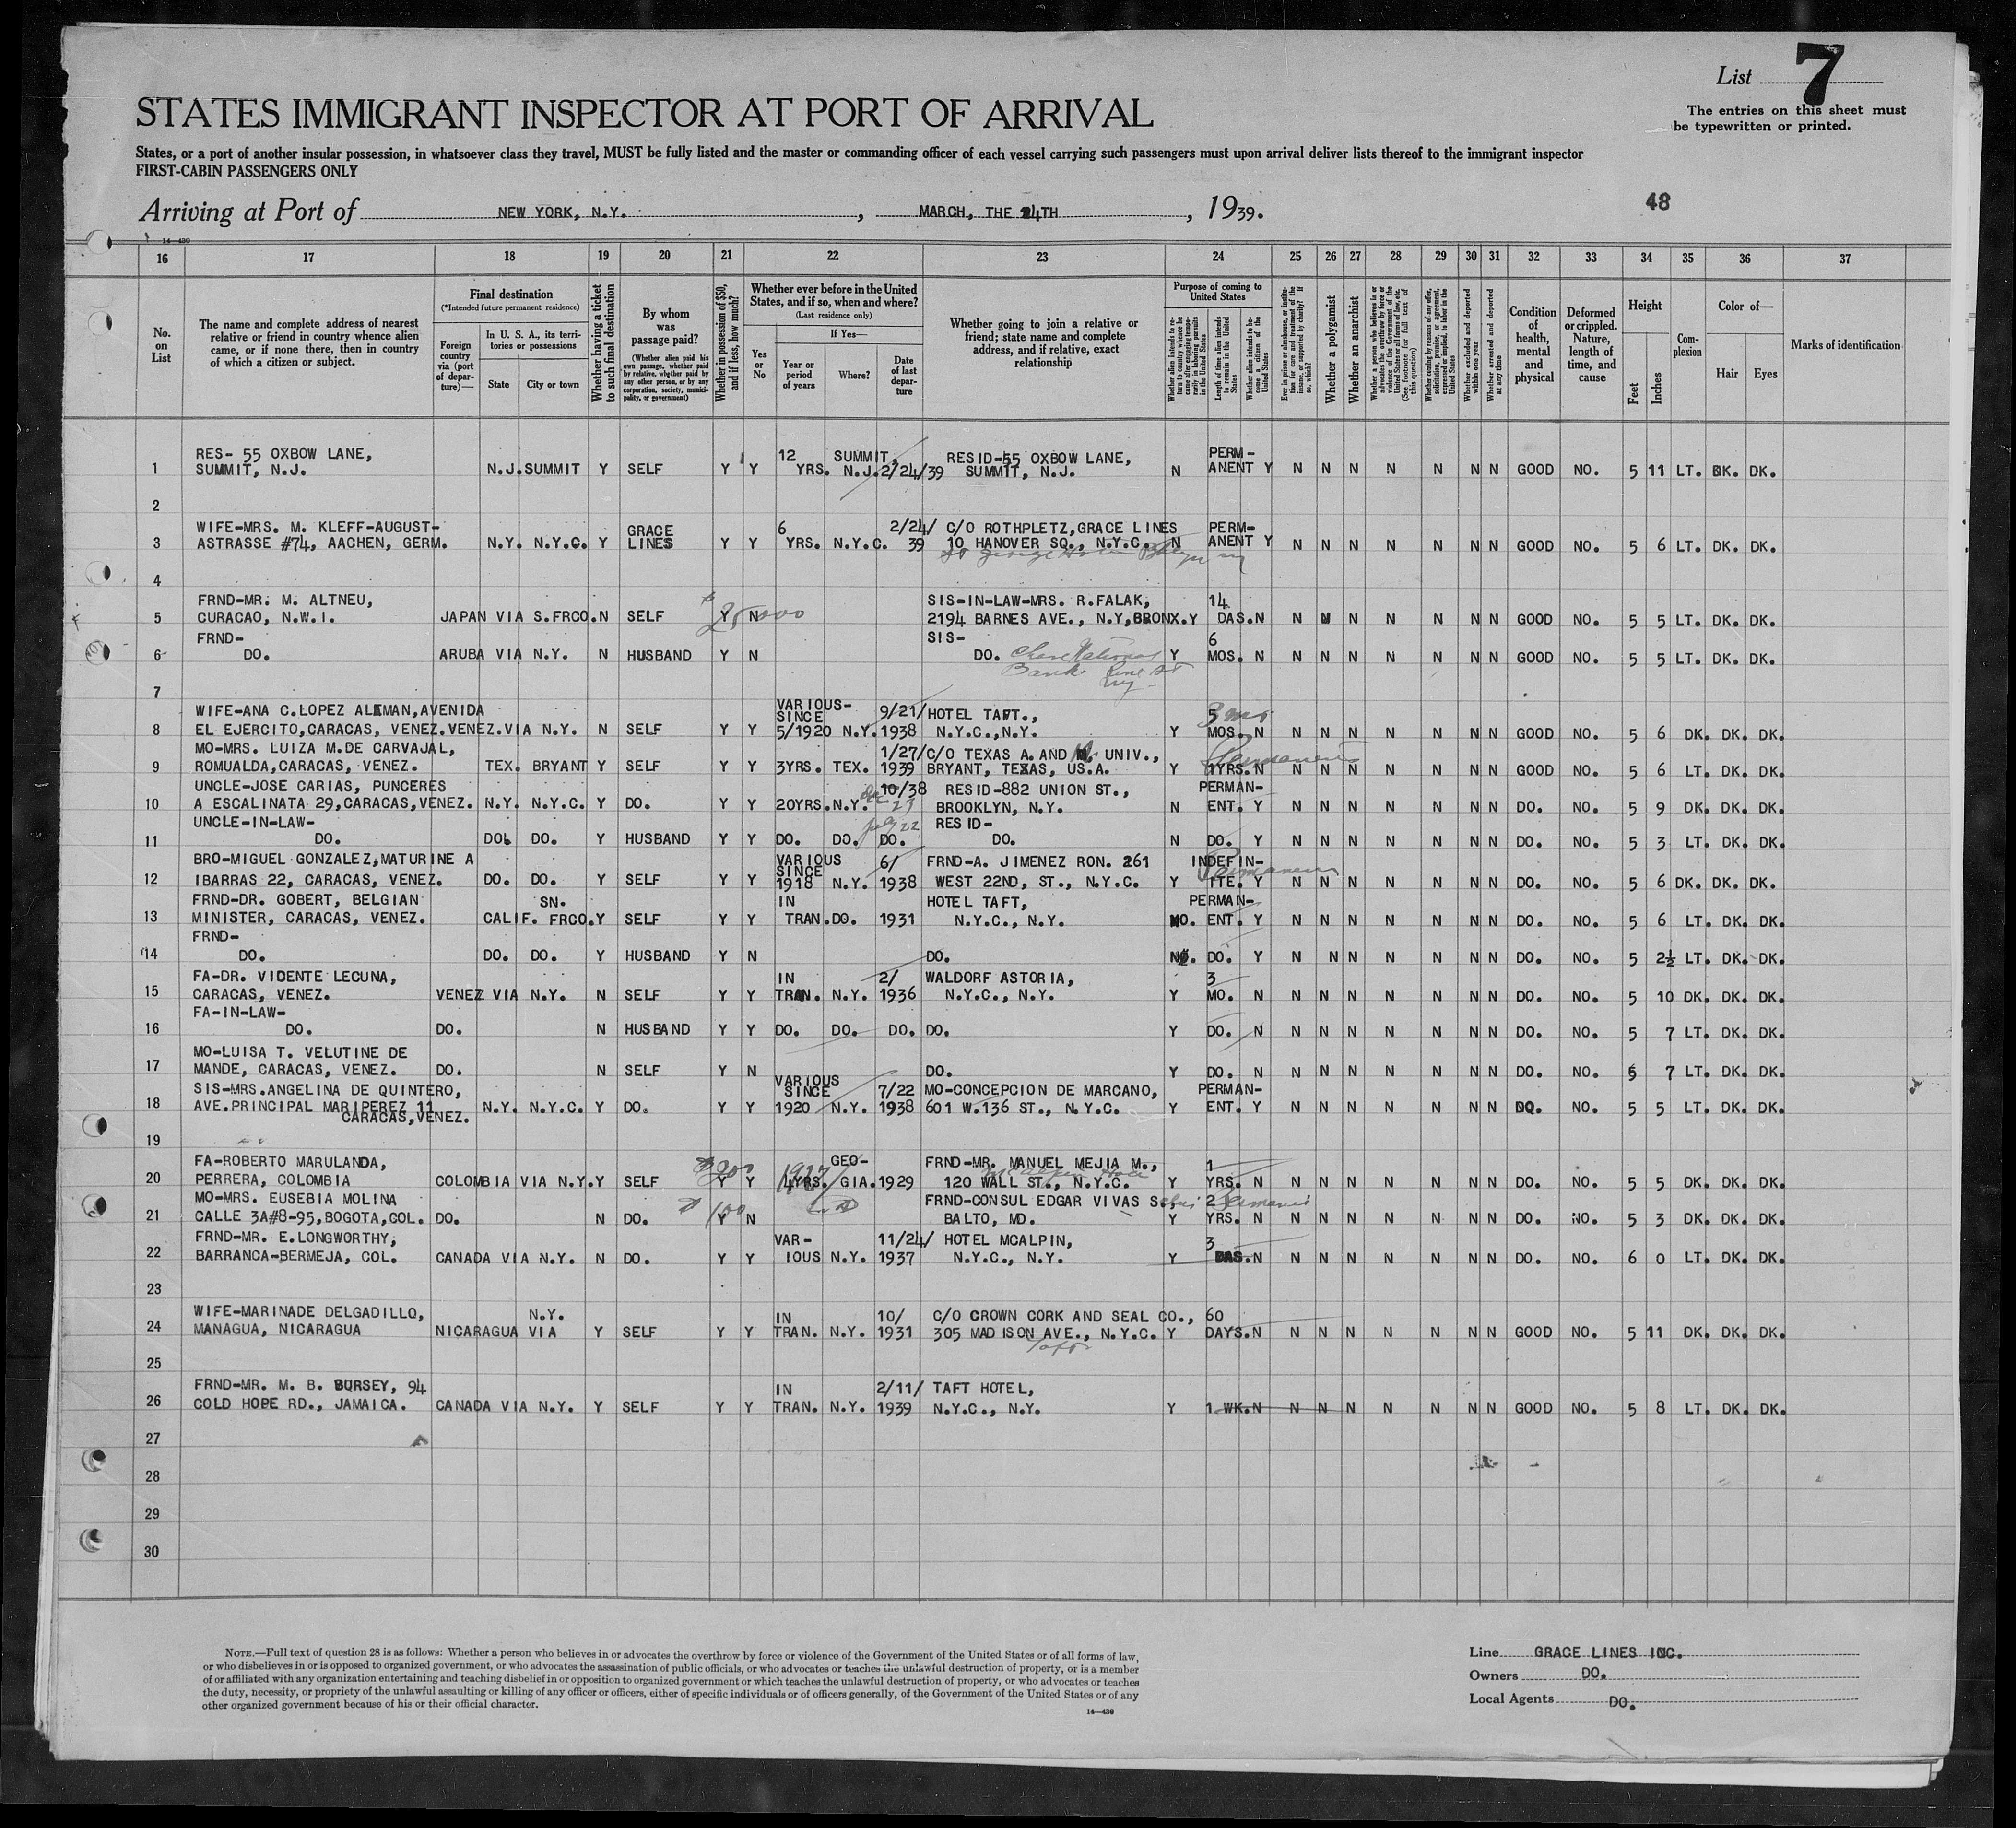 List 7
The entries on this sheet must
be typewritten or printed.
STATES IMMIGRANT INSPECTOR AT PORT OF ARRIVAL
States, or a port of another insular possession, in whatsoever class they travel, MUST be fully listed and the master or commanding officer of each vessel carrying such passengers must upon arrival deliver lists thereof to the immigrant inspector
FIRST-CABIN PASSENGERS ONLY
Arriving at Port of NEW YORK, N.Y. , MARCH, THE 24TH , 1939.
48
14—430
16 17 18 19 20 21 22 23 24 25 26 27 28 29 30 31 32 33 34 35 36 37
No. on List
The name and complete address of nearest relative or friend in country whence alien came, or if none there, then in country of which a citizen or subject.
Final destination
(*Intended future permanent residence)
Foreign country via (port of departure)—
In U. S. A., its territories or possessions
State
City or town
Whether having a ticket to such final destination
By whom was passage paid?
(Whether alien paid his own passage, whether paid by relative, whether paid by any other person, or by any corporation, society, municipality, or government)
Whether in possession of $50, and if less, how much?
Whether ever before in the United States, and if so, when and where?
(Last residence only)
Yes or No
If Yes—
Year or period of years
Where?
Date of last departure
Whether going to join a relative or friend; state name and complete address, and if relative, exact relationship
Purpose of coming to United States
Length of time alien intends to remain in the United States
Whether alien intends to become a citizen of the United States
Whether a polygamist
Whether an anarchist
Whether excluded and deported within one year
Whether arrested and deported at any time
Condition of health, mental and physical
Deformed or crippled. Nature, length of time, and cause
Height
Feet
Inches
Complexion
Color of—
Hair
Eyes
Marks of identification
RES- 55 OXBOW LANE, 12 SUMMIT, RESID-55 OXBOW LANE, PERM-
1 SUMMIT, N.J. N.J. SUMMIT Y SELF Y Y YRS. N.J. 2/24/39 SUMMIT, N.J. N ANENT Y N N N N N N N GOOD NO. 5 11 LT. DK. DK.
2
WIFE-MRS. M. KLEFF-AUGUST- GRACE 6 2/24/ C/O ROTHPLETZ, GRACE LINES PERM-
3 ASTRASSE #74, AACHEN, GERM. N.Y. N.Y.C. Y LINES Y Y YRS. N.Y.C. 39 10 HANOVER SQ., N.Y.C. N ANENT Y N N N N N N N GOOD NO. 5 6 LT. DK. DK.
St George Hotel Bklyn NY
4
FRND-MR. M. ALTNEU, SIS-IN-LAW-MRS. R.FALAK, 14
5 CURACAO, N.W.I. JAPAN VIA S.FRCO. N SELF Y N 2194 BARNES AVE., N.Y, BRONX. Y DAS. N N N N N N N GOOD NO. 5 5 LT. DK. DK.
FRND- SIS- 6
6 DO. ARUBA VIA N.Y. N HUSBAND Y N DO. Y MOS. N N N N N N N N GOOD NO. 5 5 LT. DK. DK.
Chase National
Bank Pine St
NY
7
WIFE-ANA C.LOPEZ ALEMAN, AVENIDA VARIOUS- SINCE 9/21/ HOTEL TAFT., 5 3 mos
8 EL EJERCITO, CARACAS, VENEZ. VENEZ. VIA N.Y. N SELF Y Y 5/1920 N.Y. 1938 N.Y.C., N.Y. Y MOS. N N N N N N N N GOOD NO. 5 6 DK. DK. DK.
MO-MRS. LUIZA M.DE CARVAJAL, 1/27/ C/O TEXAS A. AND M. UNIV.,
9 ROMUALDA, CARACAS, VENEZ. TEX. BRYANT Y SELF Y Y 3YRS. TEX. 1939 BRYANT, TEXAS, US.A. Y 1YRS. N N N N N N N N GOOD NO. 5 6 LT. DK. DK.
UNCLE-JOSE CARIAS, PUNCERES 10/38 RESID-882 UNION ST., PERMAN-
10 A ESCALINATA 29, CARACAS, VENEZ. N.Y. N.Y.C. Y DO. Y Y 20YRS. N.Y. BROOKLYN, N.Y. N ENT. Y N N N N N N N DO. NO. 5 9 DK. DK. DK.
UNCLE-IN-LAW- RESID-
11 DO. DO. DO. Y HUSBAND Y Y DO. DO. DO. DO. N DO. Y N N N N N N N DO. NO. 5 3 LT. DK. DK.
BRO-MIGUEL GONZALEZ, MATURINE A VARIOUS SINCE 6/ FRND-A. JIMENEZ RON. 261 INDEFIN- Permanent
12 IBARRAS 22, CARACAS, VENEZ. DO. DO. Y SELF Y Y 1918 N.Y. 1938 WEST 22ND, ST., N.Y.C. Y ITE. Y N N N N N N N DO. NO. 5 6 DK. DK. DK.
FRND-DR. GOBERT, BELGIAN SN. IN HOTEL TAFT, PERMAN-
13 MINISTER, CARACAS, VENEZ. CALIF. FRCO. Y SELF Y Y TRAN. DO. 1931 N.Y.C., N.Y. NO. ENT. Y N N N N N N N DO. NO. 5 6 LT. DK. DK.
FRND-
14 DO. DO. DO. Y HUSBAND Y N DO. NO. DO. Y N N N N N N N DO. NO. 5 2½ LT. DK. DK.
FA-DR. VIDENTE LECUNA, IN 2/ WALDORF ASTORIA, 3
15 CARACAS, VENEZ. VENEZ VIA N.Y. N SELF Y Y TRAN. N.Y. 1936 N.Y.C., N.Y. Y MO. N N N N N N N N DO. NO. 5 10 DK. DK. DK.
FA-IN-LAW-
16 DO. DO. N HUSBAND Y Y DO. DO. DO. DO. Y DO. N N N N N N N N DO. NO. 5 7 LT. DK. DK.
MO-LUISA T. VELUTINE DE
17 MANDE, CARACAS, VENEZ. DO. N SELF Y N DO. Y DO. N N N N N N N N DO. NO. 5 7 LT. DK. DK.
SIS-MRS.ANGELINA DE QUINTERO, VARIOUS SINCE 7/22 MO-CONCEPCION DE MARCANO, PERMAN-
18 AVE.PRINCIPAL MARIPEREZ 11 N.Y. N.Y.C. Y DO. Y Y 1920 N.Y. 1938 601 W.136 ST., N.Y.C. Y ENT. Y N N N N N N N DO. NO. 5 5 LT. DK. DK.
CARACAS, VENEZ.
19
FA-ROBERTO MARULANDA, GEO- FRND-MR. MANUEL MEJIA M., 1
20 PERRERA, COLOMBIA COLOMBIA VIA N.Y. Y SELF Y Y 4YRS. GIA. 1929 120 WALL ST., N.Y.C. Y YRS. N N N N N N N N DO. NO. 5 5 DK. DK. DK.
MO-MRS. EUSEBIA MOLINA $100 FRND-CONSUL EDGAR VIVAS 2
21 CALLE 3A#8-95, BOGOTA, COL. DO. N DO. Y N BALTO, MD. Y YRS. N N N N N N N N DO. NO. 5 3 DK. DK. DK.
FRND-MR. E.LONGWORTHY, VAR- 11/24/ HOTEL MCALPIN, 3
22 BARRANCA-BERMEJA, COL. CANADA VIA N.Y. N DO. Y Y IOUS N.Y. 1937 N.Y.C., N.Y. Y DAS. N N N N N N N N DO. NO. 6 0 LT. DK. DK.
23
WIFE-MARINADE DELGADILLO, N.Y. IN 10/ C/O CROWN CORK AND SEAL CO., 60
24 MANAGUA, NICARAGUA NICARAGUA VIA Y SELF Y Y TRAN. N.Y. 1931 305 MADISON AVE., N.Y.C. Y DAYS. N N N N N N N N GOOD NO. 5 11 DK. DK. DK.
25
FRND-MR. M. B. BURSEY, 94 IN 2/11/ TAFT HOTEL,
26 COLD HOPE RD., JAMAICA. CANADA VIA N.Y. Y SELF Y Y TRAN. N.Y. 1939 N.Y.C., N.Y. Y 1 WK. N N N N N N N N GOOD NO. 5 8 LT. DK. DK.
27
28
29
30
NOTE.—Full text of question 28 is as follows: Whether a person who believes in or advocates the overthrow by force or violence of the Government of the United States or of all forms of law,
or who disbelieves in or is opposed to organized government, or who advocates the assassination of public officials, or who advocates or teaches the unlawful destruction of property, or is a member
of or affiliated with any organization entertaining and teaching disbelief in or opposition to organized government or which teaches the unlawful destruction of property, or who advocates or teaches
the duty, necessity, or propriety of the unlawful assaulting or killing of any officer or officers, either of specific individuals or of officers generally, of the Government of the United States or of any
other organized government because of his or their official character.
14—430
Line GRACE LINES INC.
Owners DO.
Local Agents DO.